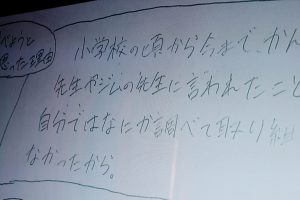 べようと
思った理由
小学校の頃から今まで、かん
先生やジムの先生に言われたこと
自分ではなにか調べて取り組
なかったから。